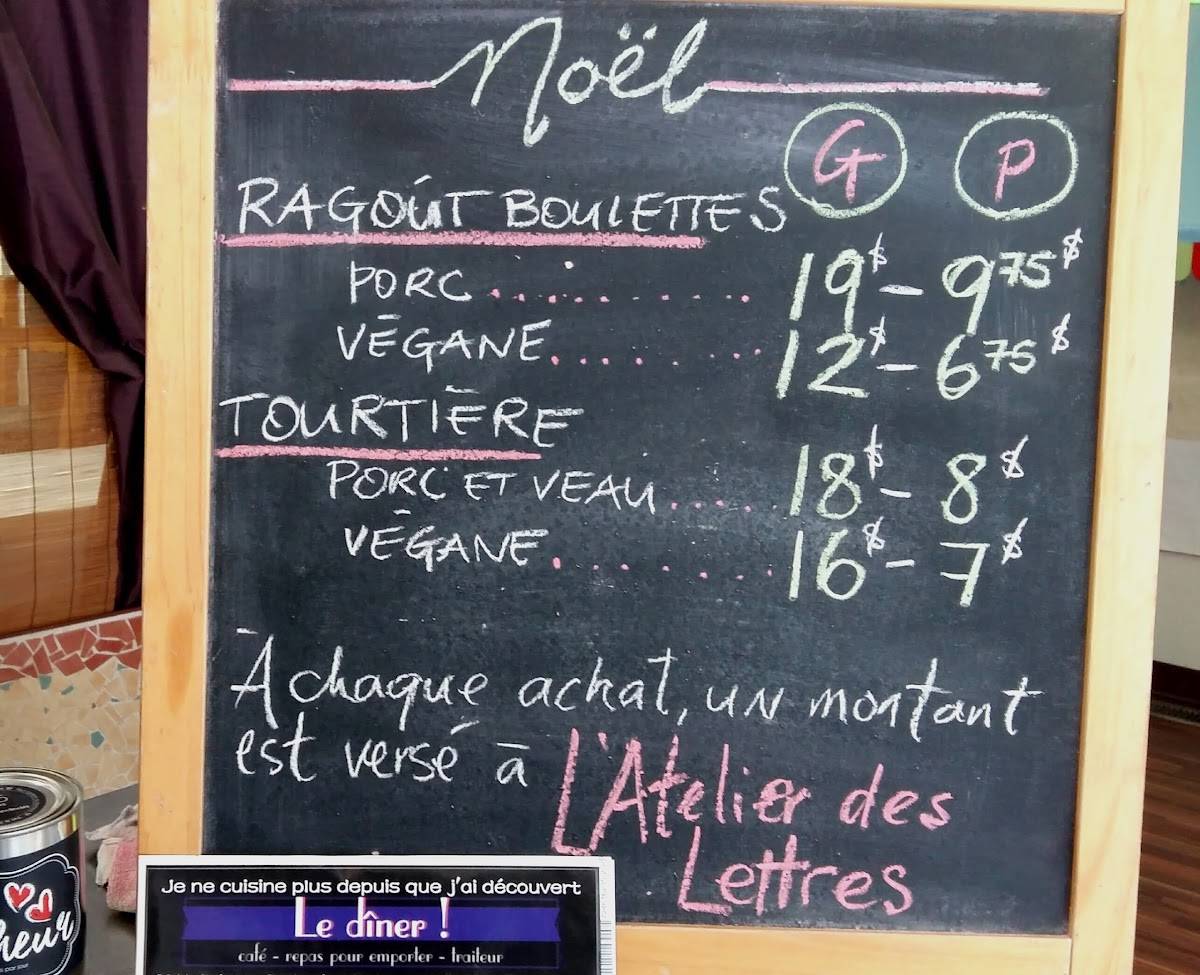 Noël
G P
RAGOÛT BOULETTES
PORC ......... 19$ - 9 75$
VÉGANE ......... 12$ - 6 75$
TOURTIÈRE
PORC ET VEAU .... 18$ - 8$
VÉGANE ...... 16$ - 7$
À chaque achat, un montant
est versé à L'Atelier des
Lettres
Je ne cuisine plus depuis que j'ai découvert
Le dîner !
café - repas pour emporter - traiteur